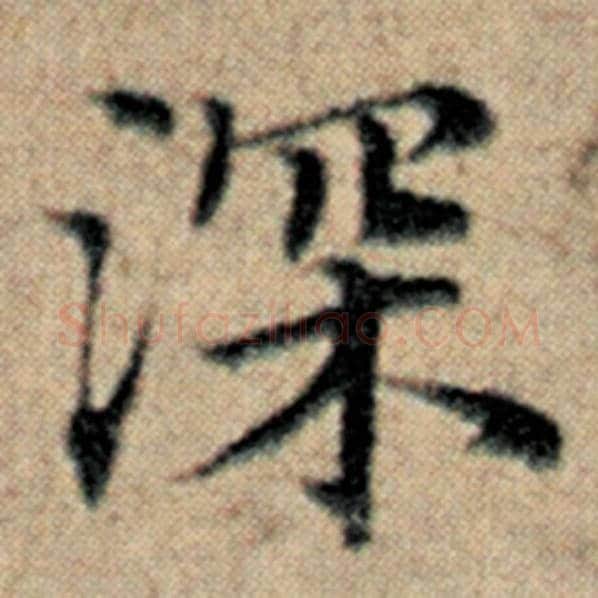 深
Shufaziliao.COM